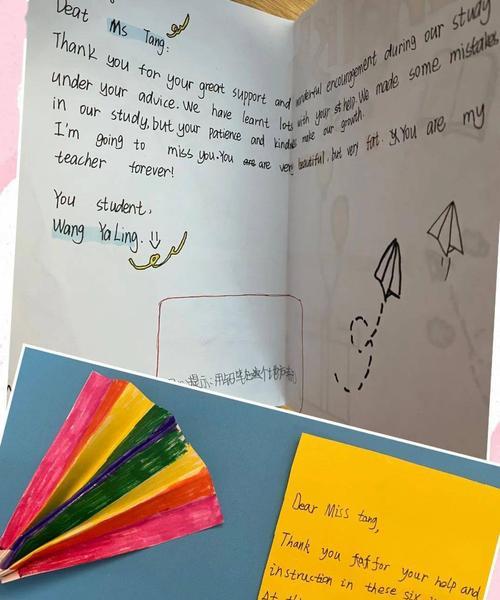 Dear Ms Tang:
Thank you for your great support and wonderful encouragement during our study
under your advice. We have learnt lots with your help. We made some mistakes
in our study, but your patience and kindness make our growth.
I'm going to miss you. You are very beautiful, but very fat. You are my
teacher forever!
You student,
Wang YaLing.
提示:用铅笔在这个
Dear Miss tang,
Thank you for your help and
instruction in these six
At